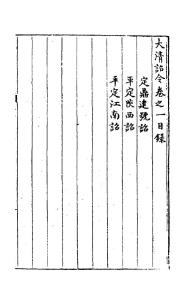 大清詔令卷之一目錄
定鼎建號詔
平定陝西詔
平定江南詔